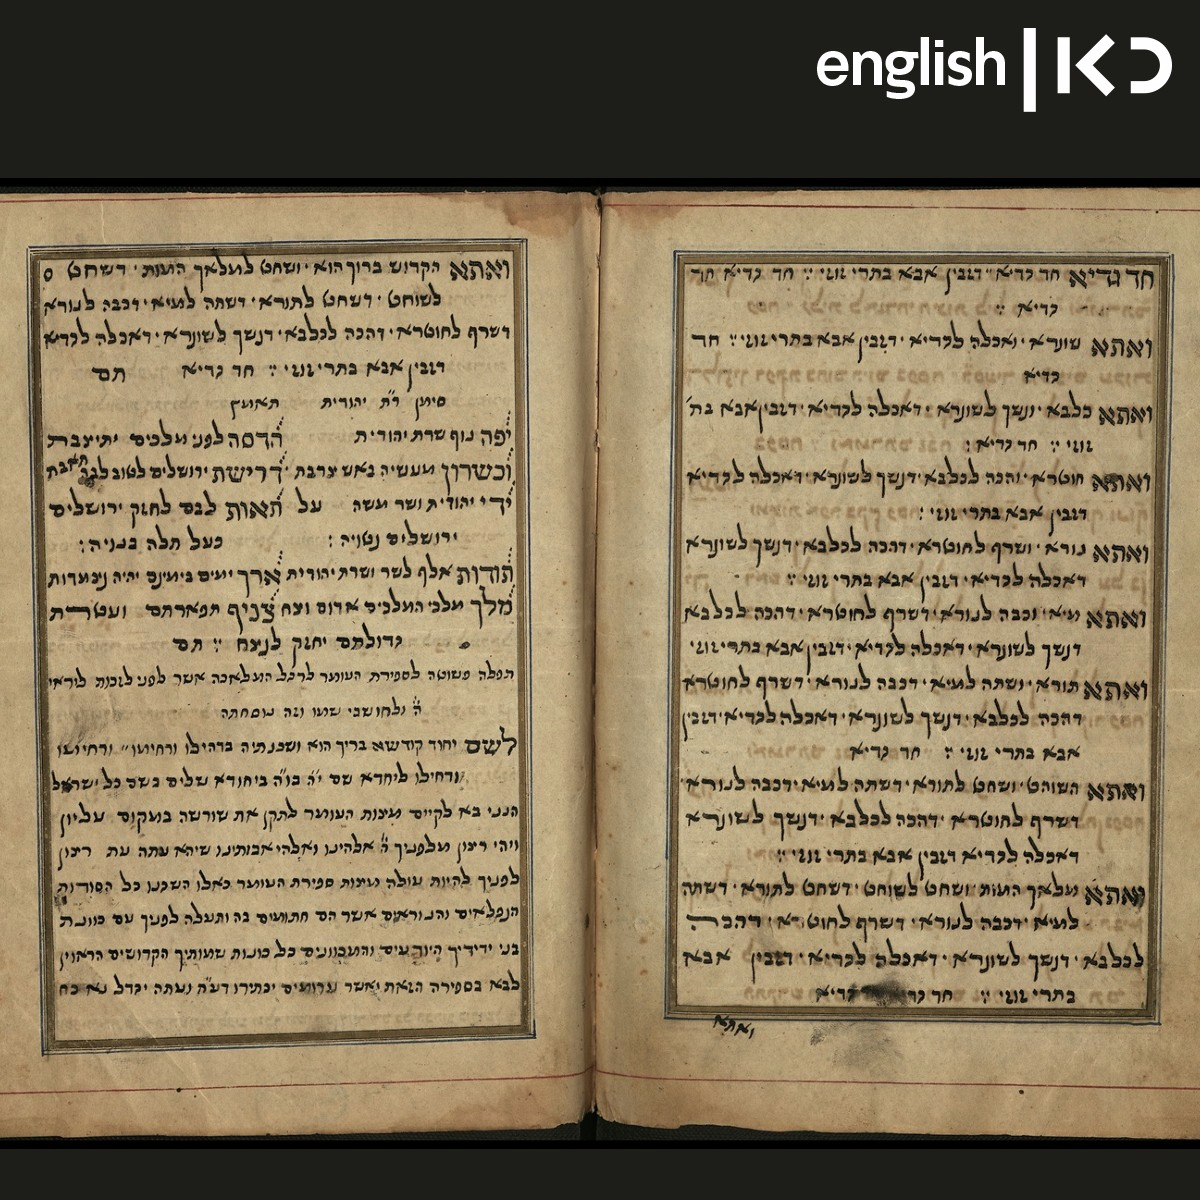 english | כאן
חד גדיא חד גדיא דזבין אבא בתרי זוזי: חד גדיא חד
גדיא:
ואתא שונרא ואכלה לגדיא דזבין אבא בתרי זוזי: חד
גדיא
ואתא כלבא ונשך לשונרא דאכלה לגדיא דזבין אבא בת׳
זוזי: חד גדיא:
ואתא חוטרא והכה לכלבא דנשך לשונרא דאכלה לגדיא
דזבין אבא בתרי זוזי:
ואתא נורא ושרף לחוטרא דהכה לכלבא דנשך לשונרא
דאכלה לגדיא דזבין אבא בתרי זוזי:
ואתא מיא וכבה לנורא דשרף לחוטרא דהכה לכלבא
דנשך לשונרא דאכלה לגדיא דזבין אבא בתרי זוזי
ואתא תורא ושתה למיא דכבה לנורא דשרף לחוטרא
דהכה לכלבא דנשך לשונרא דאכלה לגדיא דזבין
אבא בתרי זוזי: חד גדיא
ואתא השוחט ושחט לתורא דשתה למיא דכבה לנורא
דשרף לחוטרא דהכה לכלבא דנשך לשונרא
דאכלה לגדיא דזבין אבא בתרי זוזי:
ואתא מלאך המות ושחט לשוחט דשחט לתורא דשתה
למיא דכבה לנורא דשרף לחוטרא דהכה
לכלבא דנשך לשונרא דאכלה לגדיא דזבין אבא
בתרי זוזי: חד גדיא גדיא
ואתא
ואתא הקדוש ברוך הוא ושחט למלאך המות דשחט
לשוחט דשחט לתורא דשתה למיא דכבה לנורא
דשרף לחוטרא דהכה לכלבא דנשך לשונרא דאכלה לגדיא
דזבין אבא בתרי זוזי: חד גדיא תם
סימן ר״ת יהודית
יפה נוף שרת יהודית הדסה לפני מלכים יתיצבת
וכשרון מעשיה באש צרבת דרישת ירושלים לטוב
ידי יהודית ושר משה על תאות לבם לחזק ירושלים
ירושלים נטויה: כעל תלה בנויה:
תודות אלף לשר ושרת יהודית ארך ימים בימינם יהיה נצמדות
מלך מלכי המלכים אדום וצח צניף תפארתם ועטרת
גדולתם יחזק לנצח: תם
תפלה פשוטה לספירת העומר לרגל המלאכה אשר לפני לזכות ליראי
ה׳ ולחושבי שמו וזה נוסחתה
לשם יחוד קודשא בריך הוא ושכנתיה בדחילו ורחימו ורחימו
ודחילו ליחדא שם י״ה בו״ה ביחודא שלים בשם כל ישראל
הנני בא לקיים מצות העומר לתקן את שורשה במקום עליון
ויהי רצון מלפניך ה׳ אלהינו ואלהי אבותינו שיהא עתה עת רצון
לפניך להיות עולה מצות ספירת העומר כאלו השגנו כל הסודות
הנפלאים והנוראים אשר הם חתומים בה ותעלה לפניך עם כוונת
בני ידידיך היודעים והמכוונים כל כונות שמותיך הקדושים הראוין
לבא בספירה הזאת